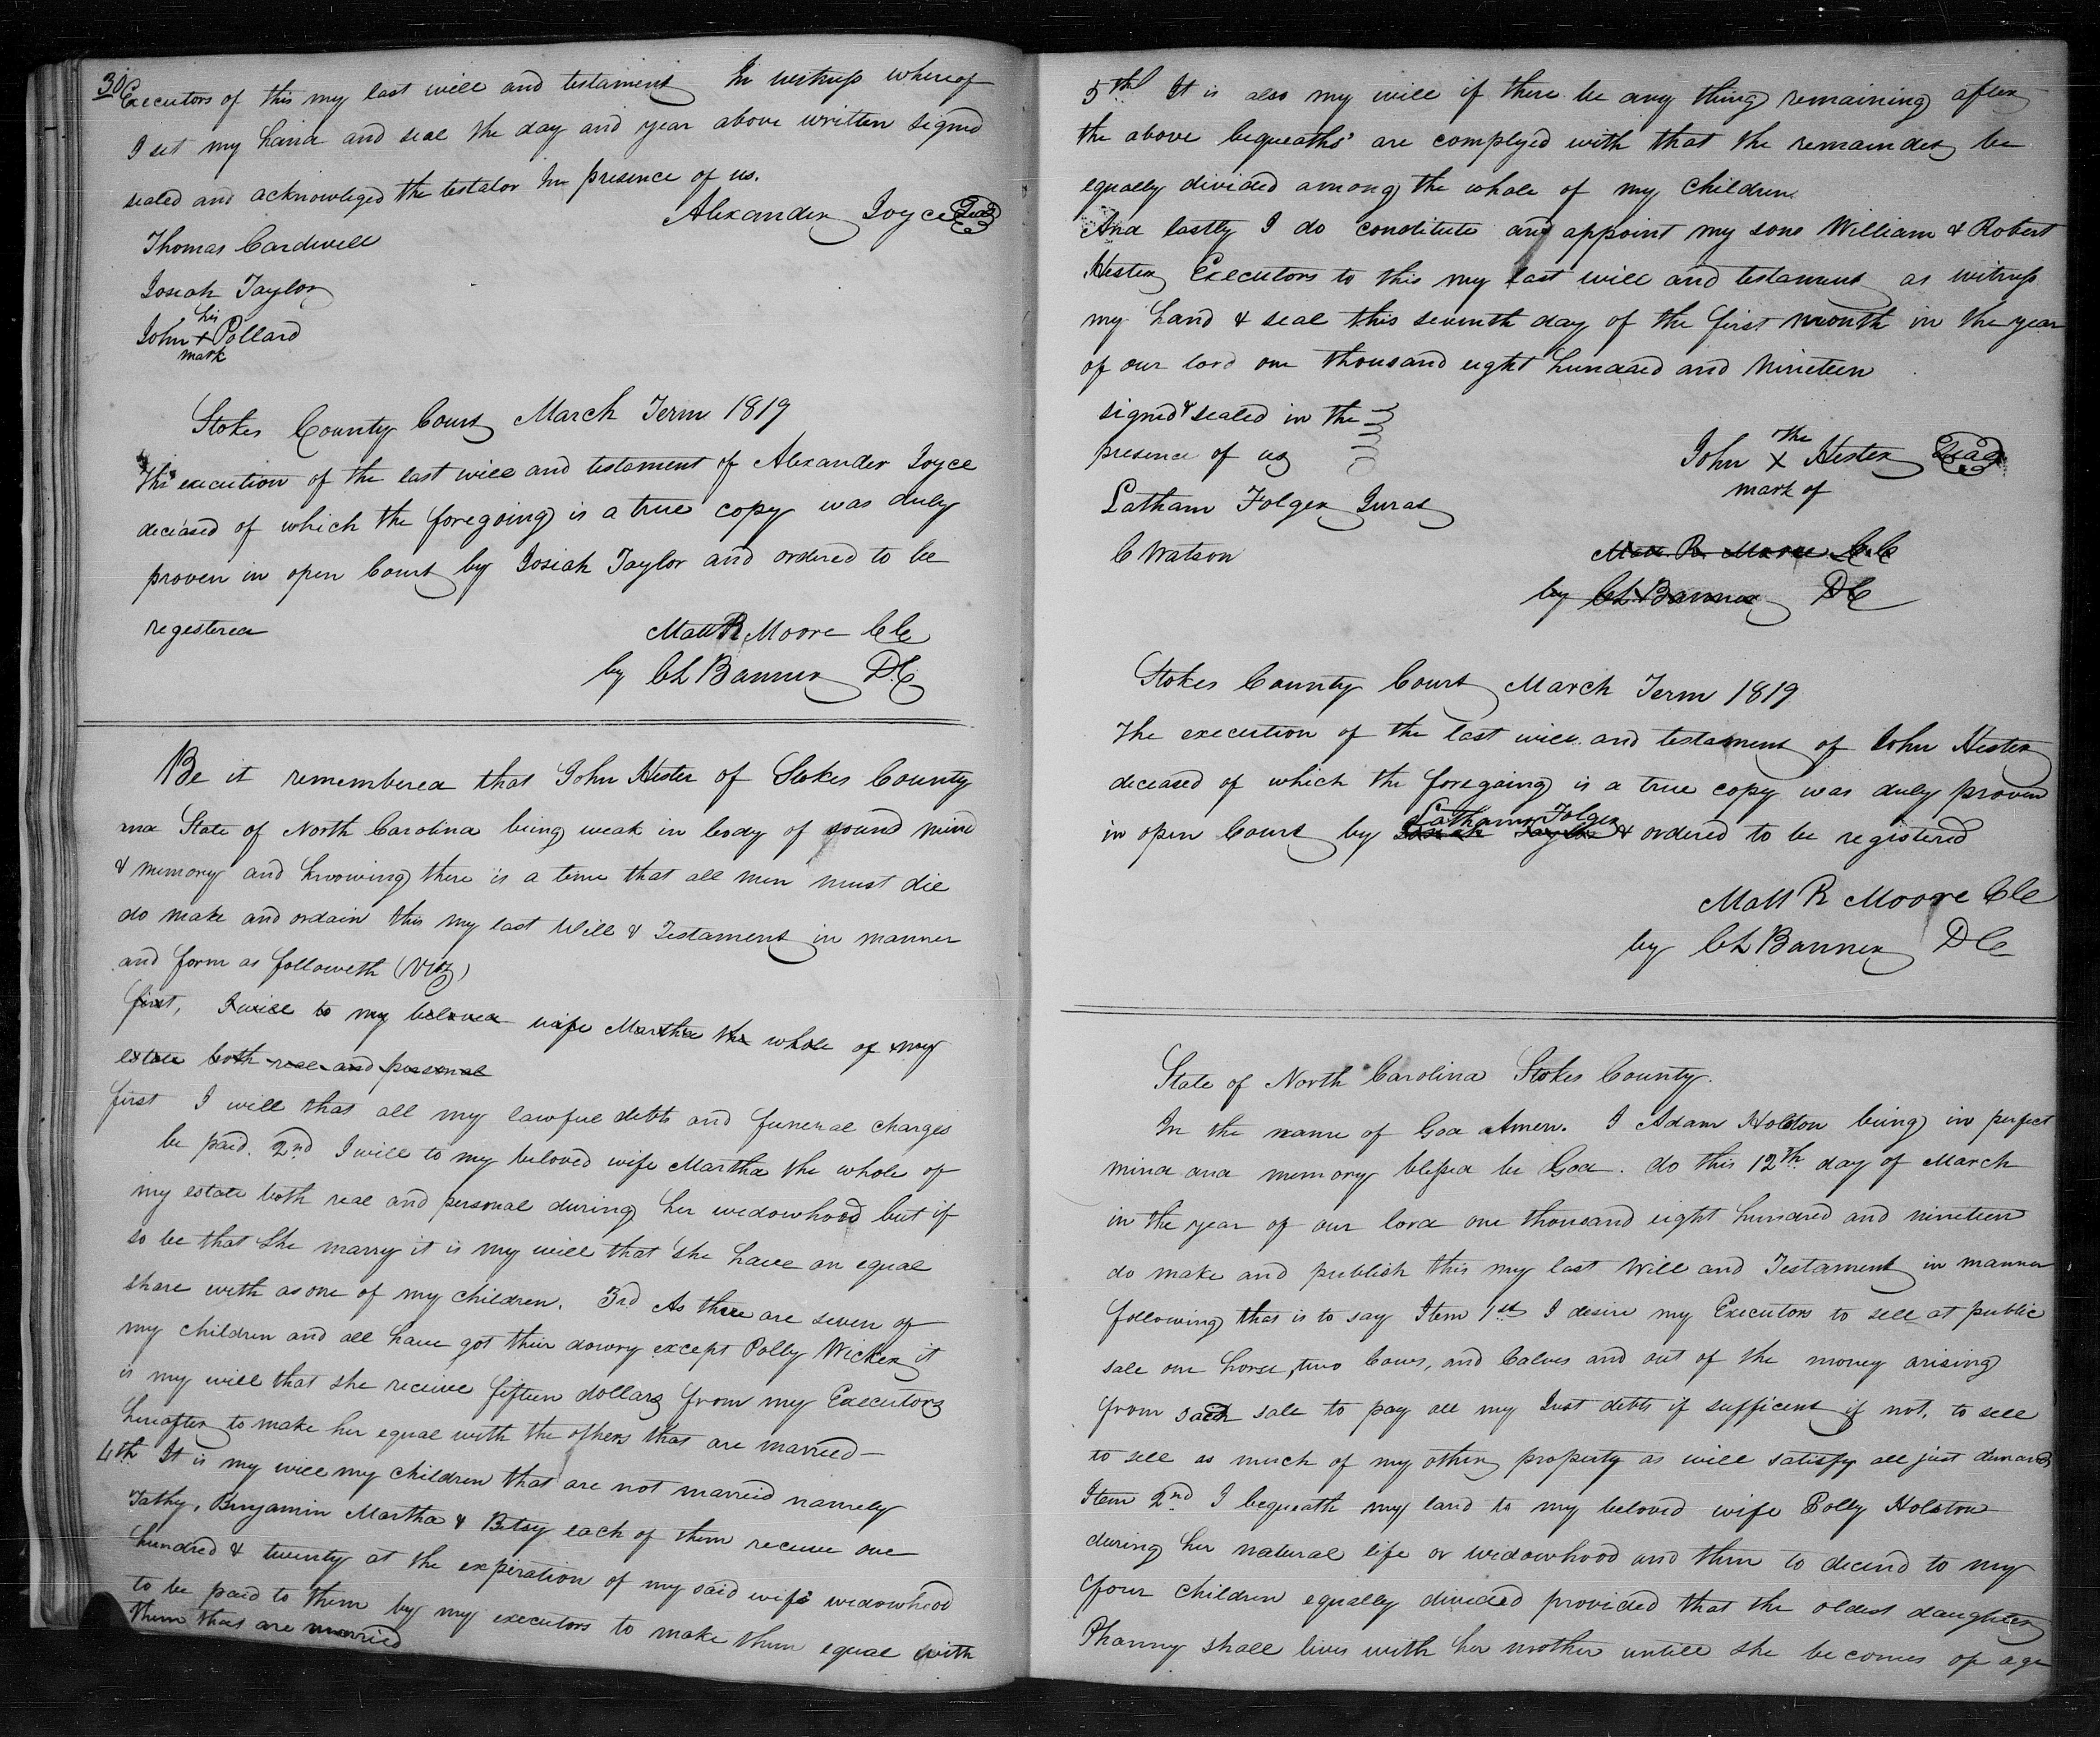 30
Executors of this my last will and testament In witness whereof
I set my hand and seal the day and year above written signed
sealed and acknowleged the testator in presence of us.
Alexander Joyce Seal
Thomas Cardwell
Josiah Taylor
his
John + Pollard
mark
Stokes County Court March Term 1819
The execution of the last will and testament of Alexander Joyce
deceased of which the foregoing is a true copy was duly
proven in open Court by Josiah Taylor and ordered to be
registered
Matt R Moore CC
by CL Banner DC
Be it remembered that John Hester of Stokes County
and State of North Carolina being weak in body of sound mind
& memory and knowing there is a time that all men must die
do make and ordain this my last Will & Testament in manner
and form as followeth (Viz)
first, I will to my beloved wife Martha the whole of my
estate both real and personal
first I will that all my lawful debts and funeral charges
be paid. 2nd I will to my beloved wife Martha the whole of
my estate both real and personal during her widowhood but if
so be that she marry it is my will that she have an equal
share with as one of my children. 3rd As there are seven of
my children and all have got their dowry except Polly Wicker it
is my will that she receive fifteen dollars from my Executors
hereafter to make her equal with the others that are married
4th It is my will my children that are not married namely
Tathy, Benjamin Martha & Betsy each of them receive one
hundred & twenty at the expiration of my said wifs widowhood
to be paid to them by my executors to make them equal with
them that are married
5th It is also my will if there be any thing remaining after
the above bequeaths are complyed with that the remainder be
equally divided among the whole of my children
And lastly I do constitute and appoint my sons William & Robert
Hester Executors to this my last will and testament as witness
my hand & seal this seventh day of the first month in the year
of our lord one thousand eight hundred and nineteen
signed & sealed in the
presence of us
The
John X Hester Seal
mark of
Latham Folger Jurat
C Watson
Matt R Moore CC
by CL Banner DC
Stokes County Court March Term 1819
The execution of the last will and testament of John Hester
deceased of which the foregoing is a true copy was duly proven
Latham Folger
in open Court by Josiah Taylor & ordered to be registered
Matt R Moore CC
by CL Banner DC
State of North Carolina Stokes County.
In the name of God Amen. I Adam Holston being in perfect
mind and memory blessed be God. do this 12th day of March
in the year of our lord one thousand eight hundred and nineteen
do make and publish this my last Will and Testament in manner
following that is to say Item 1st I desire my Executors to sell at public
sale one horse, two Cows, and Calves and out of the money arising
from said sale to pay all my Just debts if sufficent if not, to sell
to sell as much of my other property as will satisfy all just demands
Item 2nd I bequeath my land to my beloved wife Polly Holston
during her natural life or widowhood and then to decend to my
four children equally divided provided that the oldest daughter
Phanny shall lives with her mother untill she becomes of age